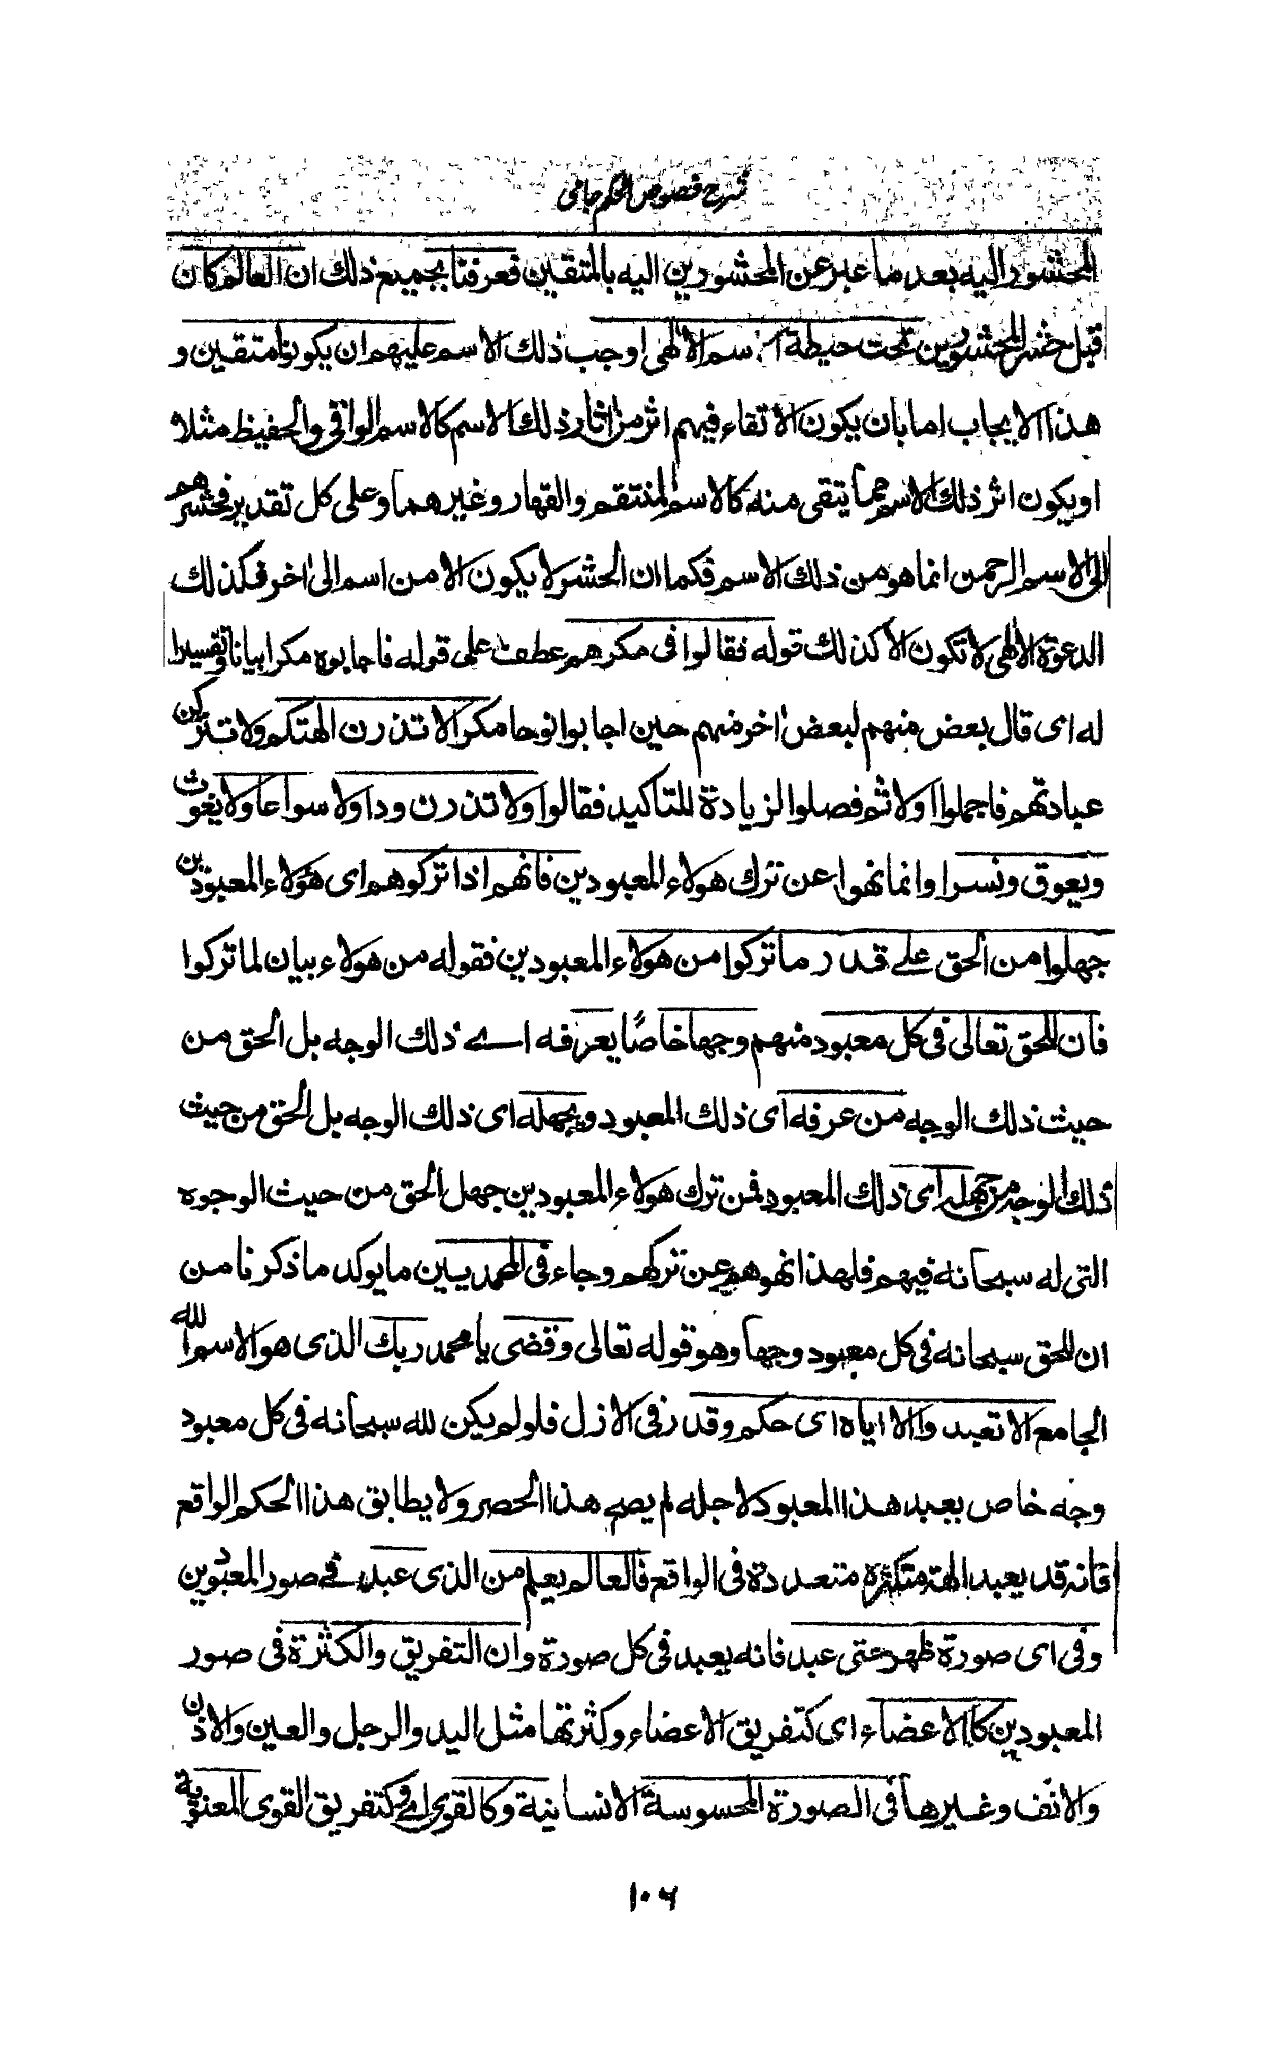 شرح فصوص الحکم جامی
المحشور اليه بعد ما عبر عن المحشورين اليه بالمتقين فعرفنا بجميع ذلك ان العالم كان
قبل حشر المحشورين تحت حيطة اسم الالٰهى اوجب ذلك الاسم عليهم ان يكونوا متقين و
هذا الايجاب اما بان يكون الاتقاء فيهم اثر من اٰثار ذلك الاسم كالاسم الواقى والحفيظ مثلا
او يكون اثر ذلك الاسم مما يتقى منه كالاسم المنتقم والقهار وغيرهما وعلى كل تقدير فحشرهم
الى الاسم الرحمن انما هو من ذلك الاسم فكما ان الحشر لا يكون الا من اسم الى اٰخر فكذلك
الدعوة الالٰهى لا تكون الا كذلك قوله فقالوا فى مكرهم عطف على قوله فاجابوه مكرا بيانا وتفسيرا
له اى قال بعض منهم لبعض اٰخر منهم حين اجابوا نوحا مكرا لا تذرن الهتكم ولا تتركن
عبادتهم فاجملوا اولا ثم فصلوا لزيادة للتاكيد فقالوا ولا تذرن ودا ولا سواعا ولا يغوث
ويعوق ونسرا وانما نهوا عن ترك هولاء المعبودين فانهم اذا تركوهم اى هؤلاء المعبودين
جهلوا من الحق علے قدر ما تركوا من هولاء المعبودين فقوله من هولاء بيان لما تركوا
فان للحق تعالى فى كل معبود منهم وجها خاصًا يعرفه اے ذلك الوجه بل الحق من
حيث ذلك الوجه من عرفه اى ذلك المعبود ويجهله اى ذلك الوجه بل الحق من حيث
ذلك الوجه من جهله اى ذلك المعبود فمن ترك هولاء المعبودين جهل الحق من حيث الوجوه
التى له سبحانه فيهم فلهذا نهوهم عن تركهم وجاء فى المحمديين ما يوكد ما ذكرنا من
ان للحق سبحانه فى كل معبود وجها وهو قوله تعالى وقضى يا محمد ربك الذى هو الاسم الله
الجامع الا تعبدوا الا اياه اى حكم وقدر فى الازل فلو لم يكن لله سبحانه فى كل معبود
وجه خاص يعبد هذا المعبود لاجله لم يصح هذا الحصر ولا يطابق هذا الحكم الواقع
فانه قد يعبد الهة متكثرة متعددة فى الواقع فالعالم يعلم من الذى عبد فے صور المعبودين
وفى اى صورة ظهر حتى عبد فانه يعبد فى كل صورة وان التفريق والكثرة فى صور
المعبودين كالاعضاء اى كتفريق الاعضاء وكثرتها مثل اليد والرجل والعين والاذن
والانف وغيرها فى الصورة المحسوسة الانسانية وكالقوى اى وكتفريق القوى المعنوية
۱۰۶